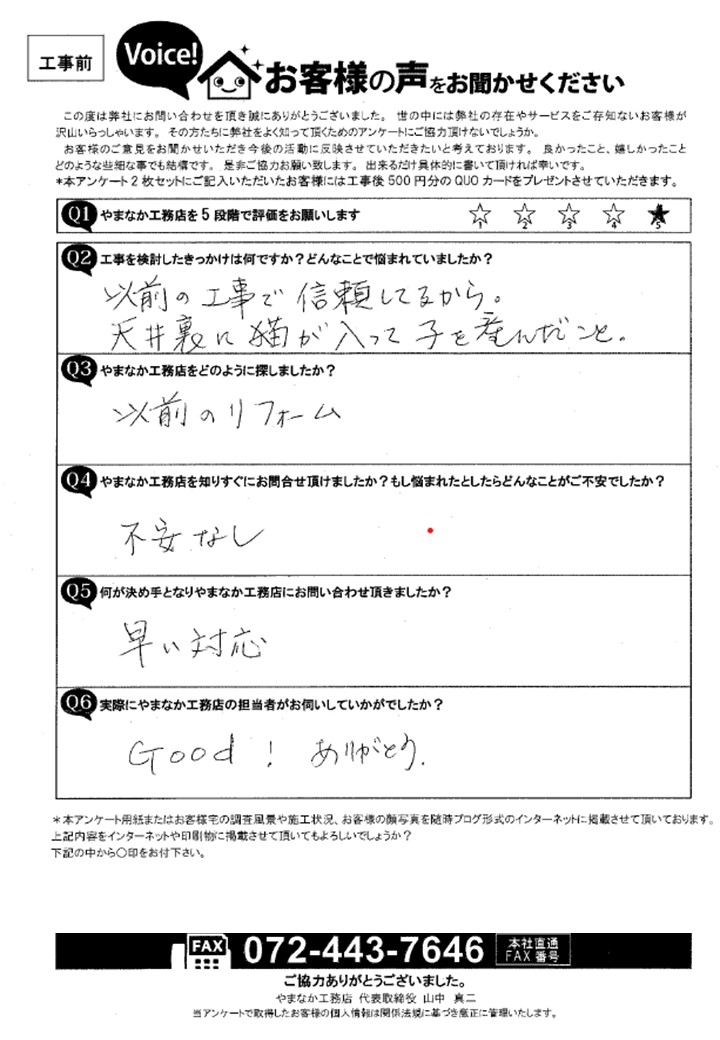 工事前
Voice!
お客様の声をお聞かせください
この度は弊社にお問い合わせを頂き誠にありがとうございました。 世の中には弊社の存在やサービスをご存知ないお客様が
沢山いらっしゃいます。 その方たちに弊社をよく知って頂くためのアンケートにご協力頂けないでしょうか。
お客様のご意見をお聞かせいただき今後の活動に反映させていただきたいと考えております。 良かったこと、嬉しかったこと
どのような些細な事でも結構です。 是非ご協力お願い致します。 出来るだけ具体的に書いて頂ければ幸いです。
*本アンケート2枚セットにご記入いただいたお客様には工事後500円分のQUOカードをプレゼントさせていただきます。
Q1 やまなか工務店を5段階で評価をお願いします ☆1 ☆2 ☆3 ☆4 ★5
Q2 工事を検討したきっかけは何ですか?どんなことで悩まれていましたか?
以前の工事で信頼してるから。
天井裏に猫が入って子を産んだこと。
Q3 やまなか工務店をどのように探しましたか?
以前のリフォーム
Q4 やまなか工務店を知りすぐにお問合せ頂けましたか?もし悩まれたとしたらどんなことがご不安でしたか?
不安なし
Q5 何が決め手となりやまなか工務店にお問い合わせ頂きましたか?
早い対応
Q6 実際にやまなか工務店の担当者がお伺いしていかがでしたか?
Good! ありがとう.
*本アンケート用紙またはお客様宅の調査風景や施工状況、お客様の顔写真を随時ブログ形式のインターネットに掲載させて頂いております。
上記内容をインターネットや印刷物に掲載させて頂いてもよろしいでしょうか?
下記の中から○印をお付下さい。
FAX 072-443-7646 本社直通
FAX番号
ご協力ありがとうございました。
やまなか工務店 代表取締役 山中 真二
当アンケートで取得したお客様の個人情報は関係法規に基づき厳正に管理いたします。